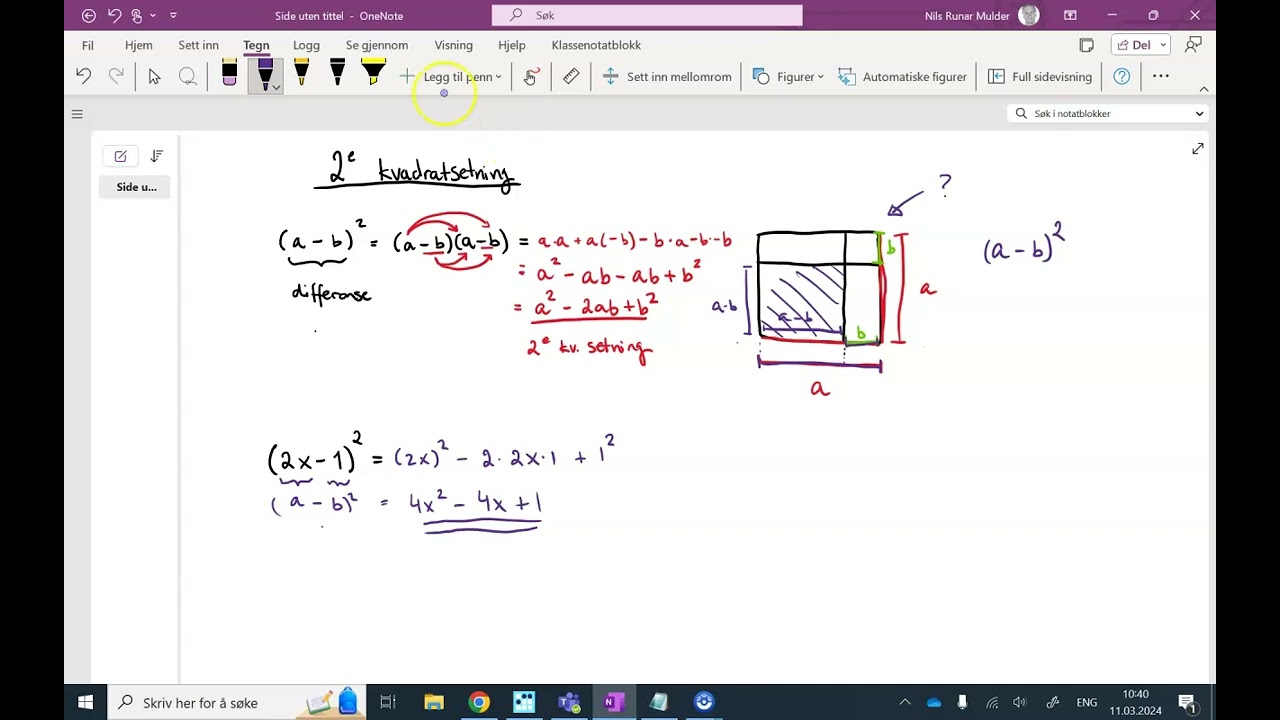 Side uten tittel - OneNote
Søk
Nils Runar Mulder
Fil Hjem Sett inn Tegn Logg Se gjennom Visning Hjelp Klassenotatblokk
Del
Legg til penn
Sett inn mellomrom
Figurer
Automatiske figurer
Full sidevisning
Søk i notatblokker
Side u...
2e kvadratsetning
(a - b)² = (a - b)(a - b) = a·a + a(-b) - b·a - b·-b
differanse
= a² - ab - ab + b²
= a² - 2ab + b²
2e kv. setning
?
b
a
a-b
a-b
b
a
(a - b)²
(2x - 1)² = (2x)² - 2·2x·1 + 1²
(a - b)² = 4x² - 4x + 1
Skriv her for å søke
ENG
10:40
11.03.2024
1